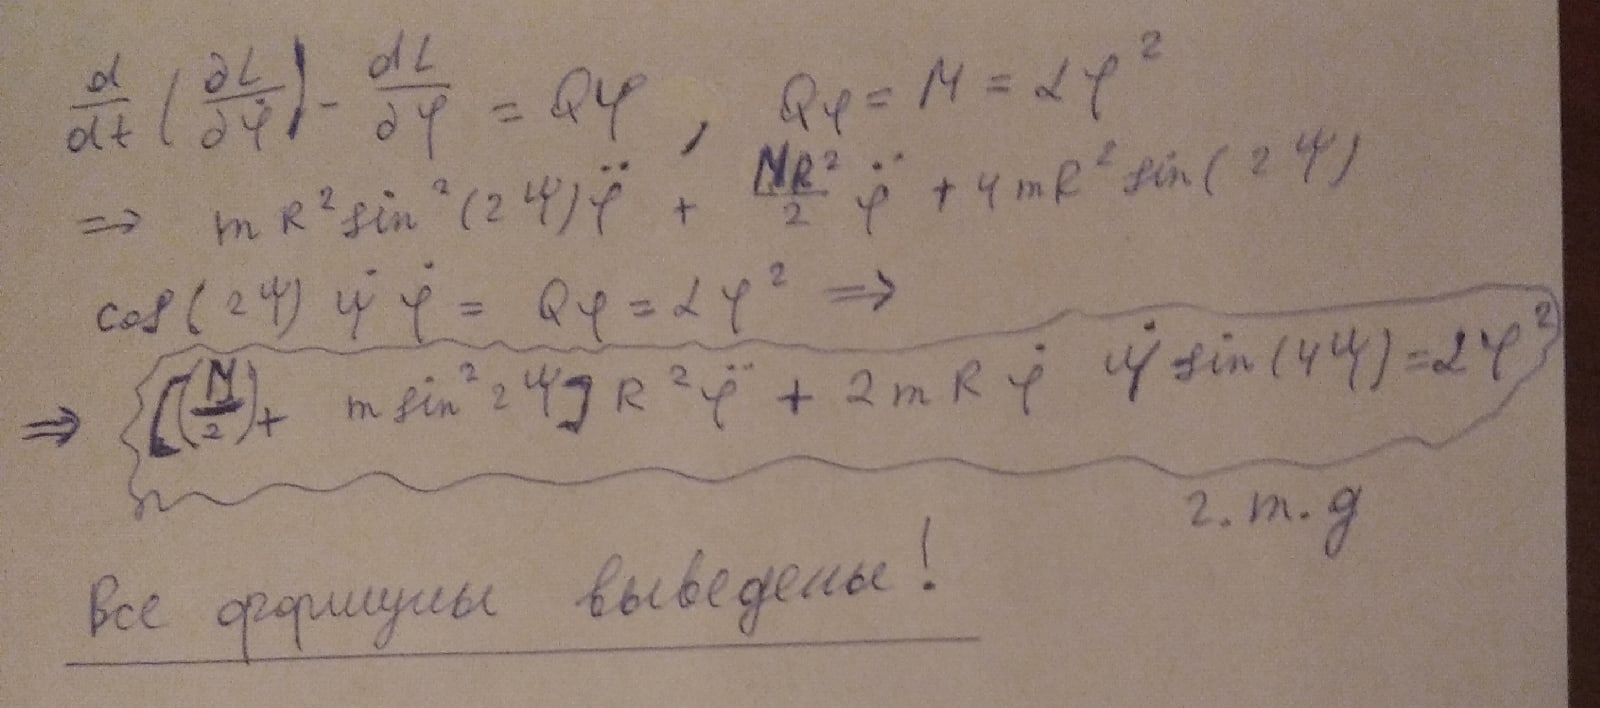 d/dt (∂L/∂φ̇) - dL/∂φ = Qφ, Qφ = M = αφ²
⇒ mR² sin²(2ψ)φ̈ + MR²/2 φ̈ + 4mR² sin(2ψ)
cos(2ψ) ψ̇ φ̇ = Qφ = αφ² ⇒
⇒ [(M/2) + m sin² 2ψ] R² φ̈ + 2mR φ̇ ψ̇ sin(4ψ) = αφ²
ч.т.д
Все формулы выведены!